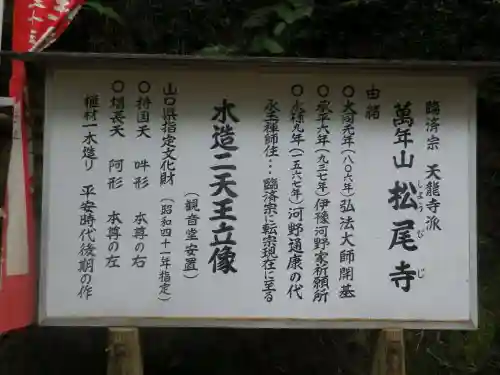 臨済宗 天龍寺派
萬年山 松尾寺
しょう び じ
由緒
○大同元年(八〇六年)弘法大師開基
○承平六年(九三七年)伊豫河野家祈願所
○永禄九年(一五六七年)河野通康の代
永玉禅師住…臨済宗に転宗現在に至る
木造二天王立像
(観音堂安置)
山口県指定文化財 (昭和四十一年指定)
○持国天 吽形 本尊の右
○増長天 阿形 本尊の左
檜材一木造り 平安時代後期の作